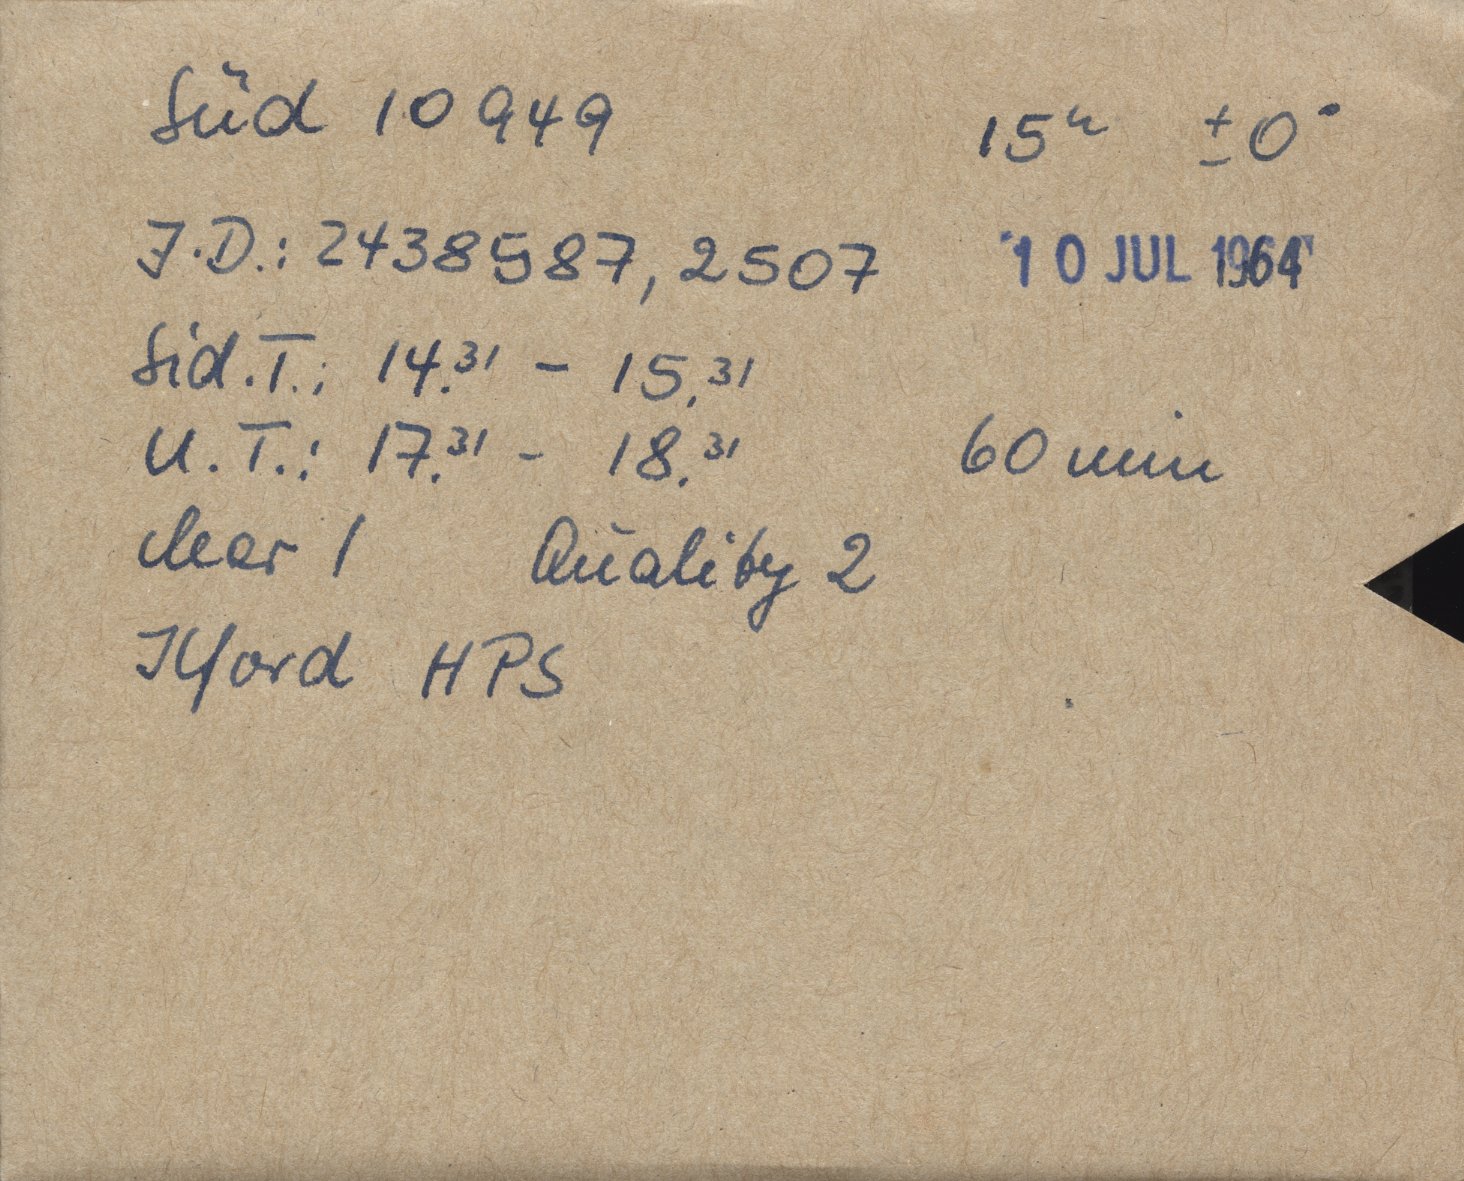 Süd 10949 15ʰ ±0°
J.D.: 2438587,2507 10 JUL 1964
Sid.T.: 14.³¹ - 15.³¹
U.T.: 17.³¹ - 18.³¹ 60 min
clear 1 Quality 2
Ilford HPS